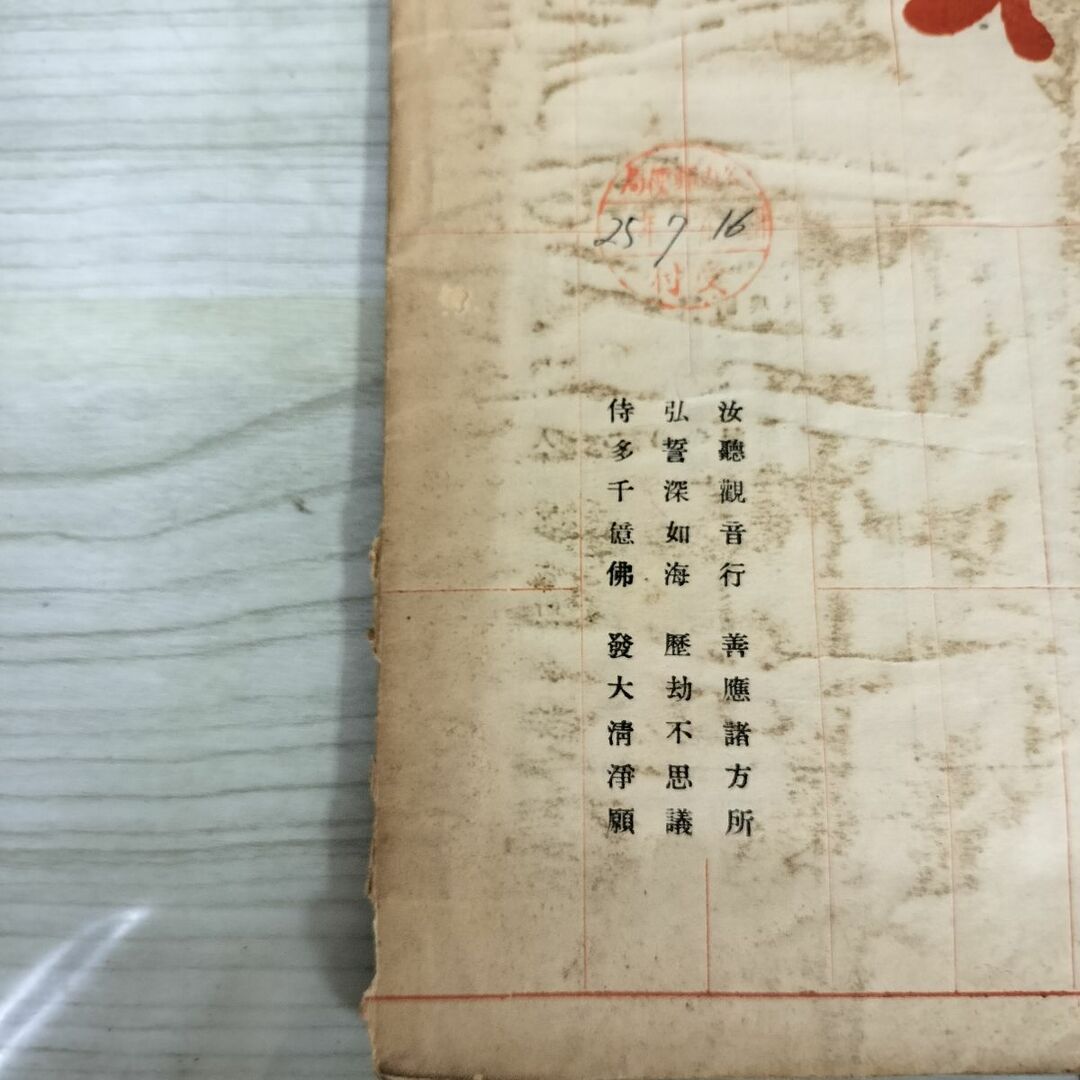 25 7 16
受付
汝聽觀音行 善應諸方所
弘誓深如海 歷劫不思議
侍多千億佛 發大淸淨願